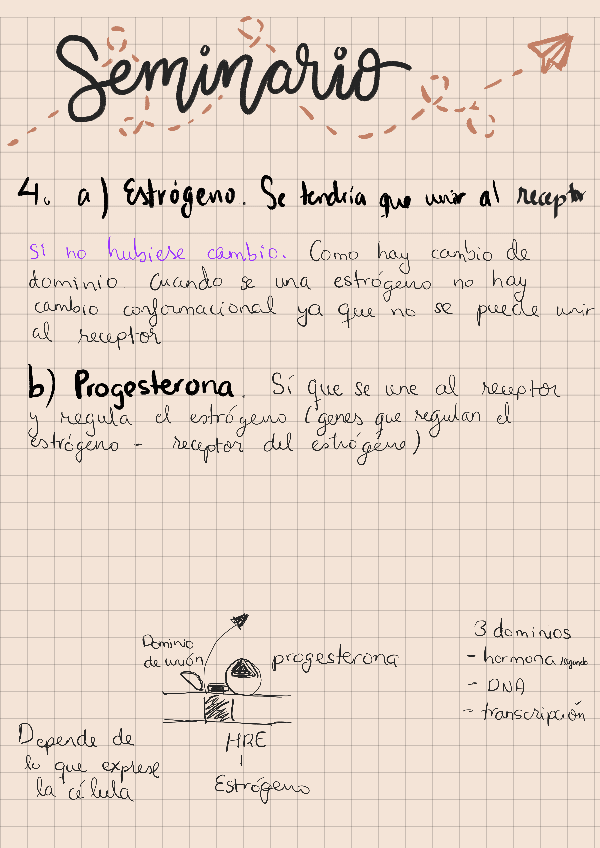 Seminario
4. a) Estrógeno. Se tendría que unir al receptor
si no hubiese cambio. Como hay cambio de
dominio cuando se una estrógeno no hay
cambio conformacional ya que no se puede unir
al receptor
b) Progesterona. Sí que se une al receptor
y regula el estrógeno (genes que regulan el
estrógeno - receptor del estrógeno)
Dominio
de unión
progesterona
3 dominios
- hormona
- DNA
- transcripción
Depende de
lo que exprese
la célula
HRE
Estrógeno